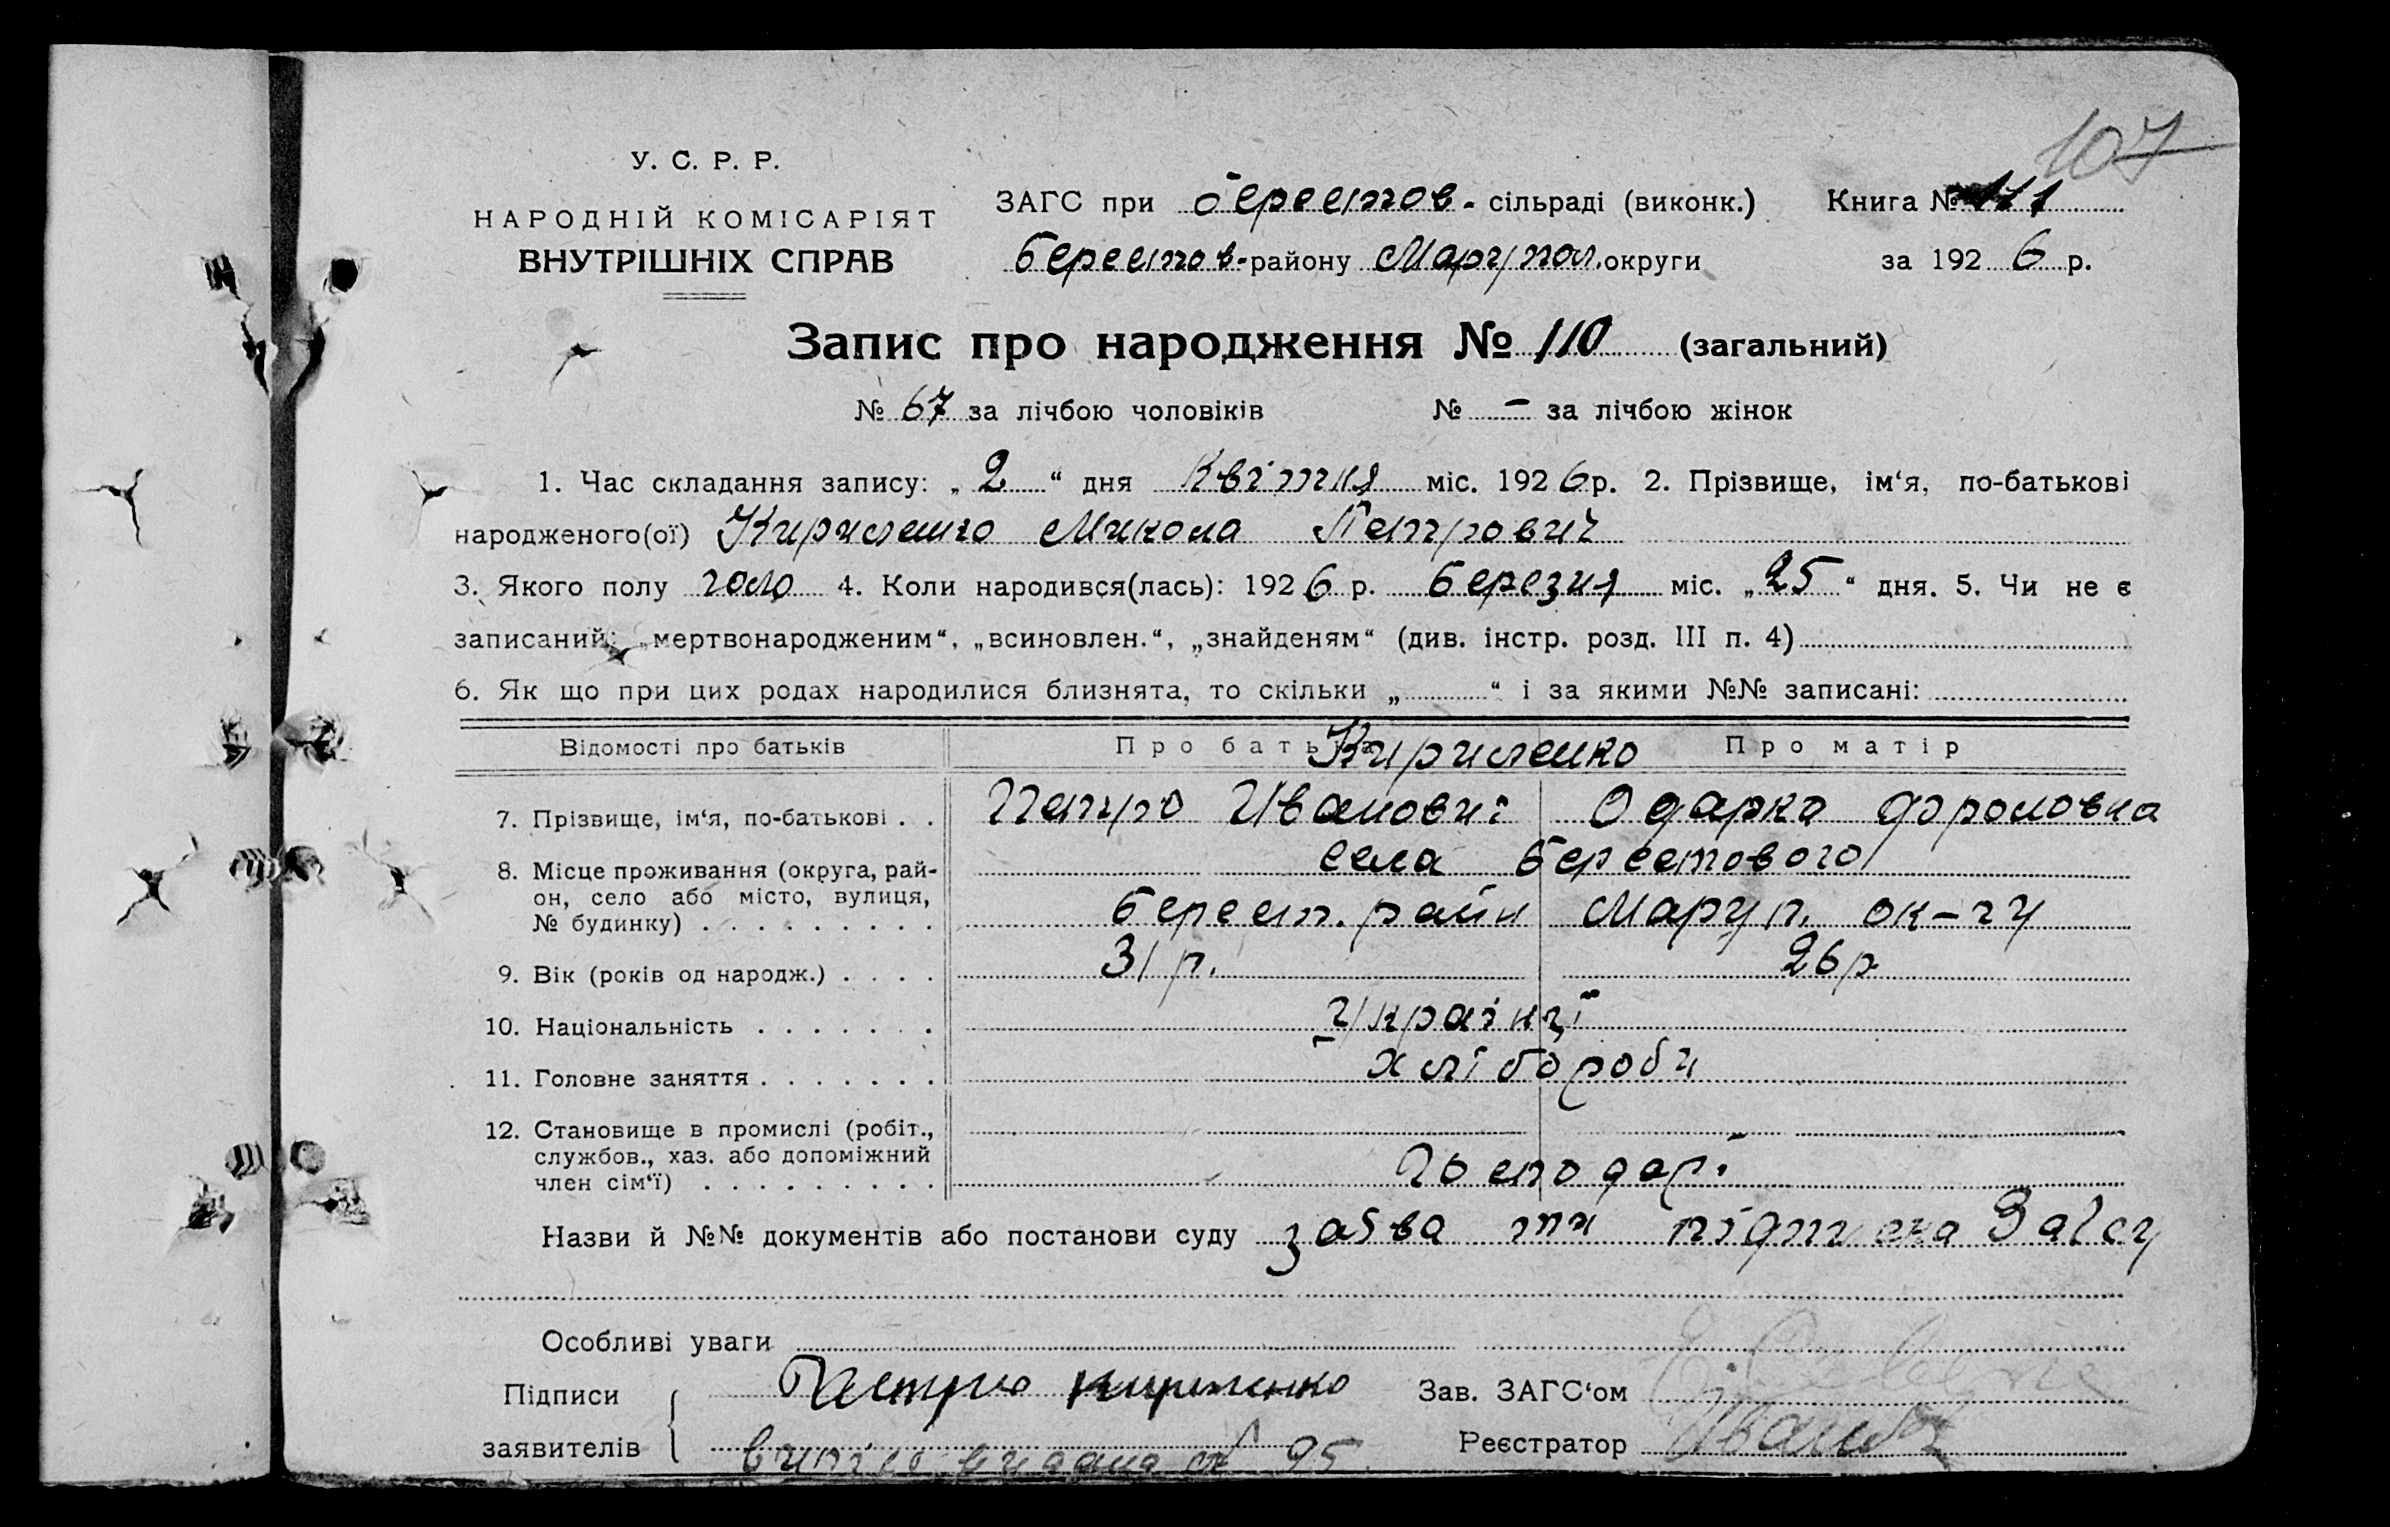 107
У. С. Р. Р.
НАРОДНІЙ КОМІСАРІЯТ
ВНУТРІШНІХ СПРАВ
ЗАГС при берестов. сільраді (виконк.) Книга №
Берестов. району Марупол. округи за 1926 р.
Запис про народження № 110 (загальний)
№ 67 за лічбою чоловіків № – за лічбою жінок
1. Час складання запису: „2“ дня Квітня міс. 1926 р. 2. Прізвище, ім‘я, по-батькові
народженого(ої) Кириленко Микола Петрович
3. Якого полу чоло 4. Коли народився(лась): 1926 р. березня міс. „25“ дня. 5. Чи не є
записаний: „мертвонародженим“, „всиновлен.“, „знайденям“ (див. інстр. розд. III п. 4)
6. Як що при цих родах народилися близнята, то скільки „ “ і за якими №№ записані:
Відомості про батьків Про батька Про матір
Кириленко
7. Прізвище, ім‘я, по-батькові . . Петро Иванович Одарка Фроловна
8. Місце проживання (округа, рай- села Берестового
он, село або місто, вулиця,
№ будинку) . . . . . . . . . Берест. району Маруп. ок-ги
9. Вік (років од народж.) . . . . 31 р. 26 р
10. Національність . . . . . . . Українці
11. Головне заняття . . . . . . . хлібороби
12. Становище в промислі (робіт.,
службов., хаз. або допоміжний
член сім‘ї) . . . . . . . . . господарі
Назви й №№ документів або постанови суду заява ти Загсу
Особливі уваги
Підписи Петро Кириленко Зав. ЗАГС‘ом
заявителів випис видана № 95 Реєстратор